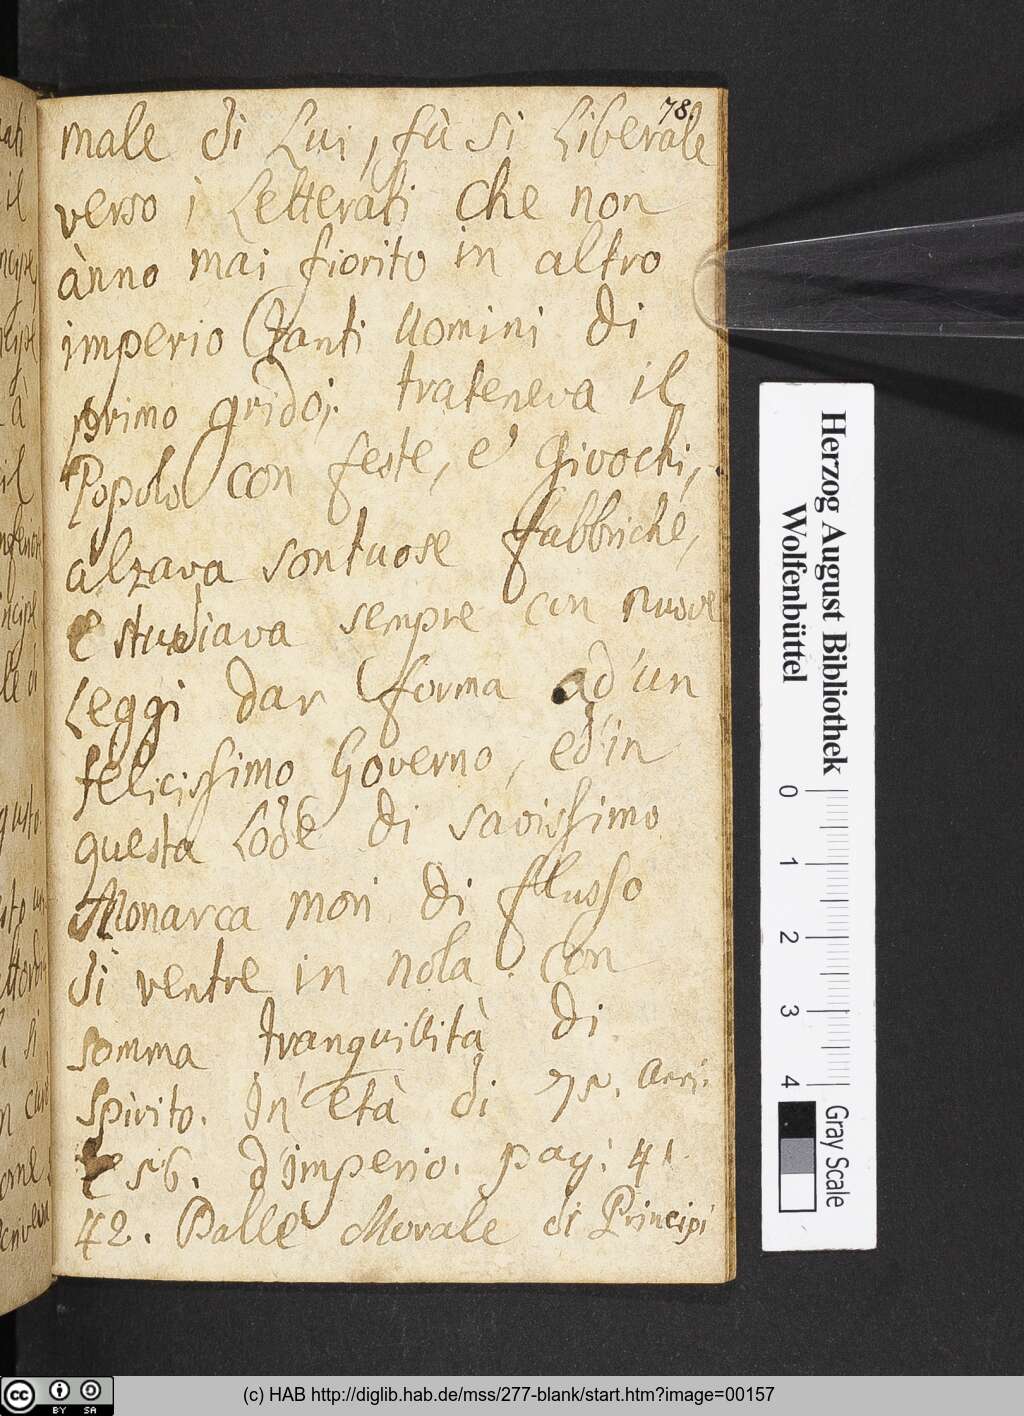 78.
male di Lui, fù si Liberale
verso i Letterati che non
ànno mai fiorito in altro
imperio tanti Uomini di
primo grido; trateneva il
Popolo con feste, e Givochi,
alzava sontuose fabbriche,
e studiava sempre con nuove
Leggi dar forma ad'un
felicissimo Governo, ed'in
questa Lode di savissimo
Monarca mori di flusso
di ventre in nola con
somma tranquillità di
Spirito. In età di 75. anni
e 56. d'imperio. pag: 41
42. Dalle Morale di Principi
Herzog August Bibliothek
Wolfenbüttel
0 1 2 3 4
Gray Scale
cc BY SA
(c) HAB http://diglib.hab.de/mss/277-blank/start.htm?image=00157